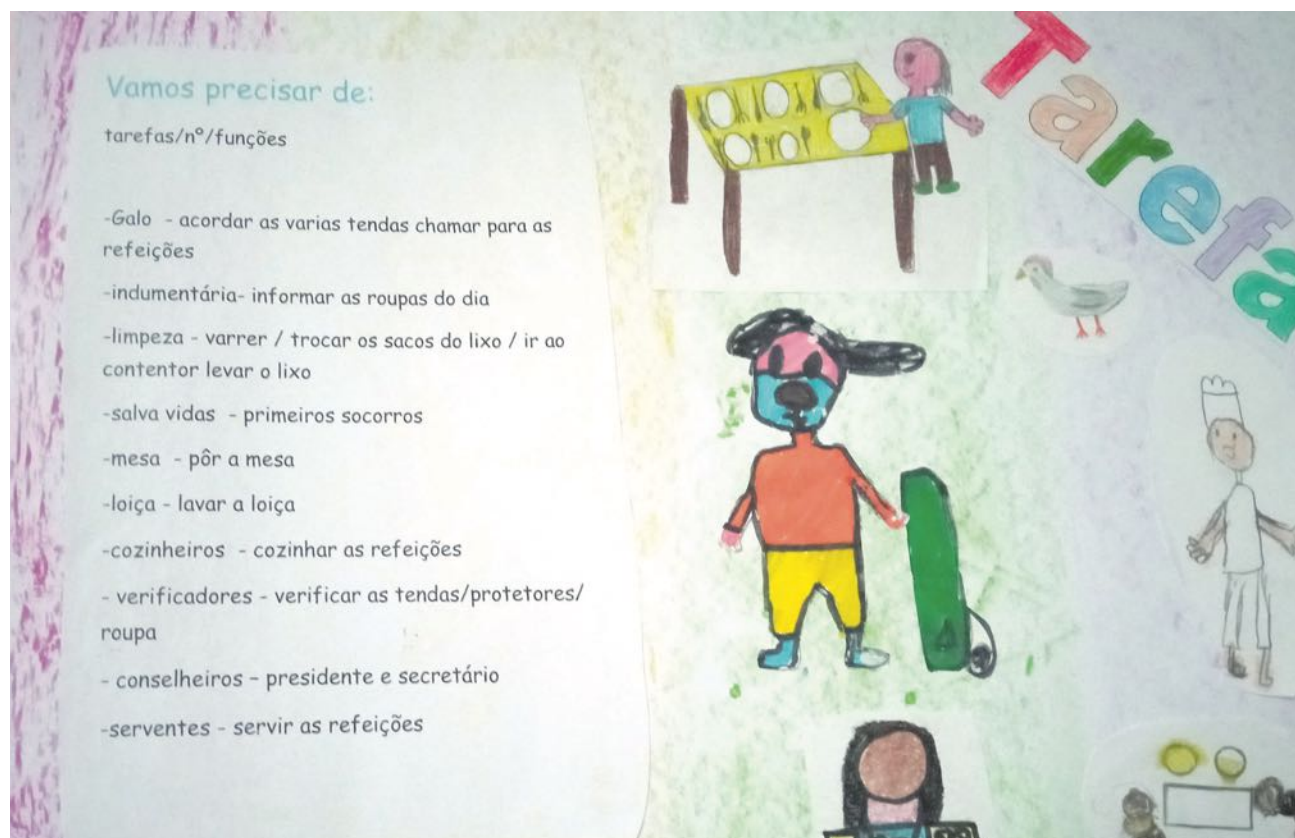 Vamos precisar de:
tarefas/nº/funções
-Galo - acordar as varias tendas chamar para as
refeições
-indumentária- informar as roupas do dia
-limpeza - varrer / trocar os sacos do lixo / ir ao
contentor levar o lixo
-salva vidas - primeiros socorros
-mesa - pôr a mesa
-loiça - lavar a loiça
-cozinheiros - cozinhar as refeições
- verificadores - verificar as tendas/protetores/
roupa
- conselheiros - presidente e secretário
-serventes - servir as refeições
Tarefa